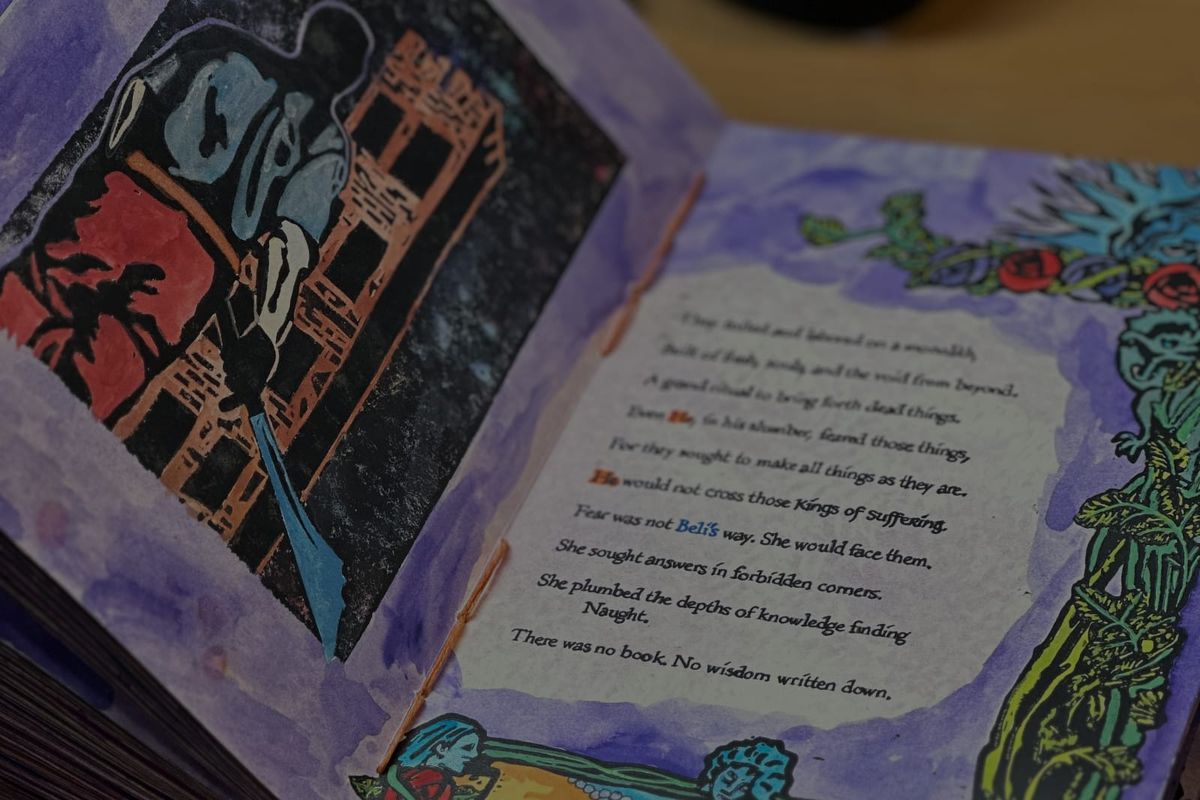 They toiled and labored on a monolith,
Built of flesh, souls, and the void from beyond.
A grand ritual to bring forth dead things.
Even He, in his slumber, feared those things,
For they sought to make all things as they are.
He would not cross those Kings of Suffering.
Fear was not Beli's way. She would face them.
She sought answers in forbidden corners.
She plumbed the depths of knowledge finding
Naught.
There was no book. No wisdom written down.